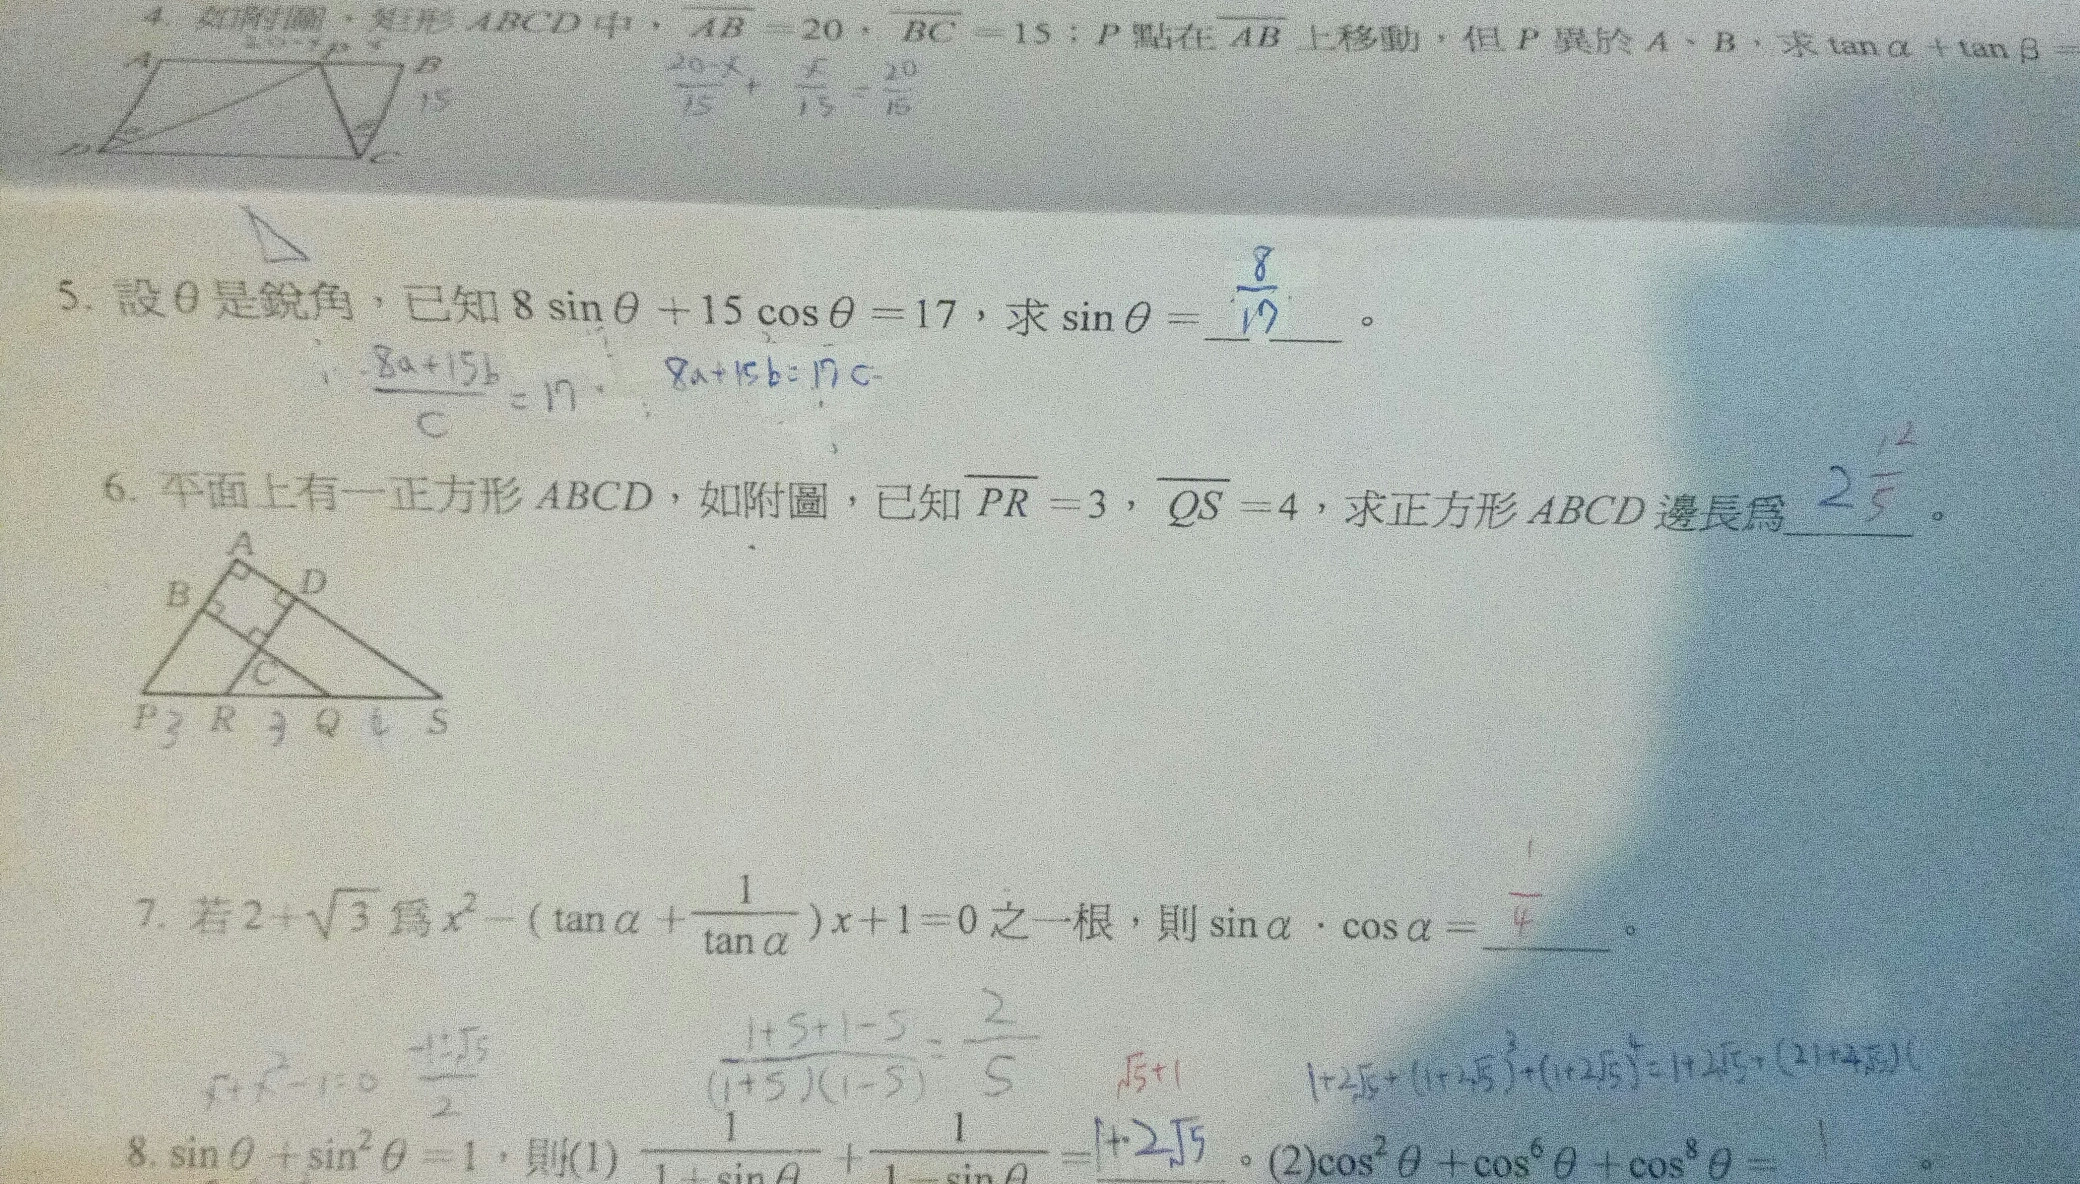 4. 如附圖，矩形 ABCD 中， AB = 20， BC = 15；P 點在 AB 上移動，但 P 異於 A、B，求 tan α + tan β =
20-x P x
A B
15
D C
20-x/15 + x/15 = 20/15
5. 設 θ 是銳角，已知 8 sin θ + 15 cos θ = 17，求 sin θ = 8/17 。
8a+15b/c = 17 8a+15b = 17c
6. 平面上有一正方形 ABCD，如附圖，已知 PR = 3， QS = 4，求正方形 ABCD 邊長為 2 12/5 。
A
B D
C
P 3 R 3 Q S
7. 若 2+√3 為 x² - ( tan α + 1/tan α ) x + 1 = 0 之一根，則 sin α · cos α = 1/4 。
x+x²-1=0 -1±√5/2 1+S+1-S/(1+S)(1-S) = 2/S √5+1
8. sin θ + sin² θ = 1，則(1) 1/1+sin θ + 1/1-sin θ = 1+2√5 。(2)cos² θ + cos⁶ θ + cos⁸ θ = 1 。